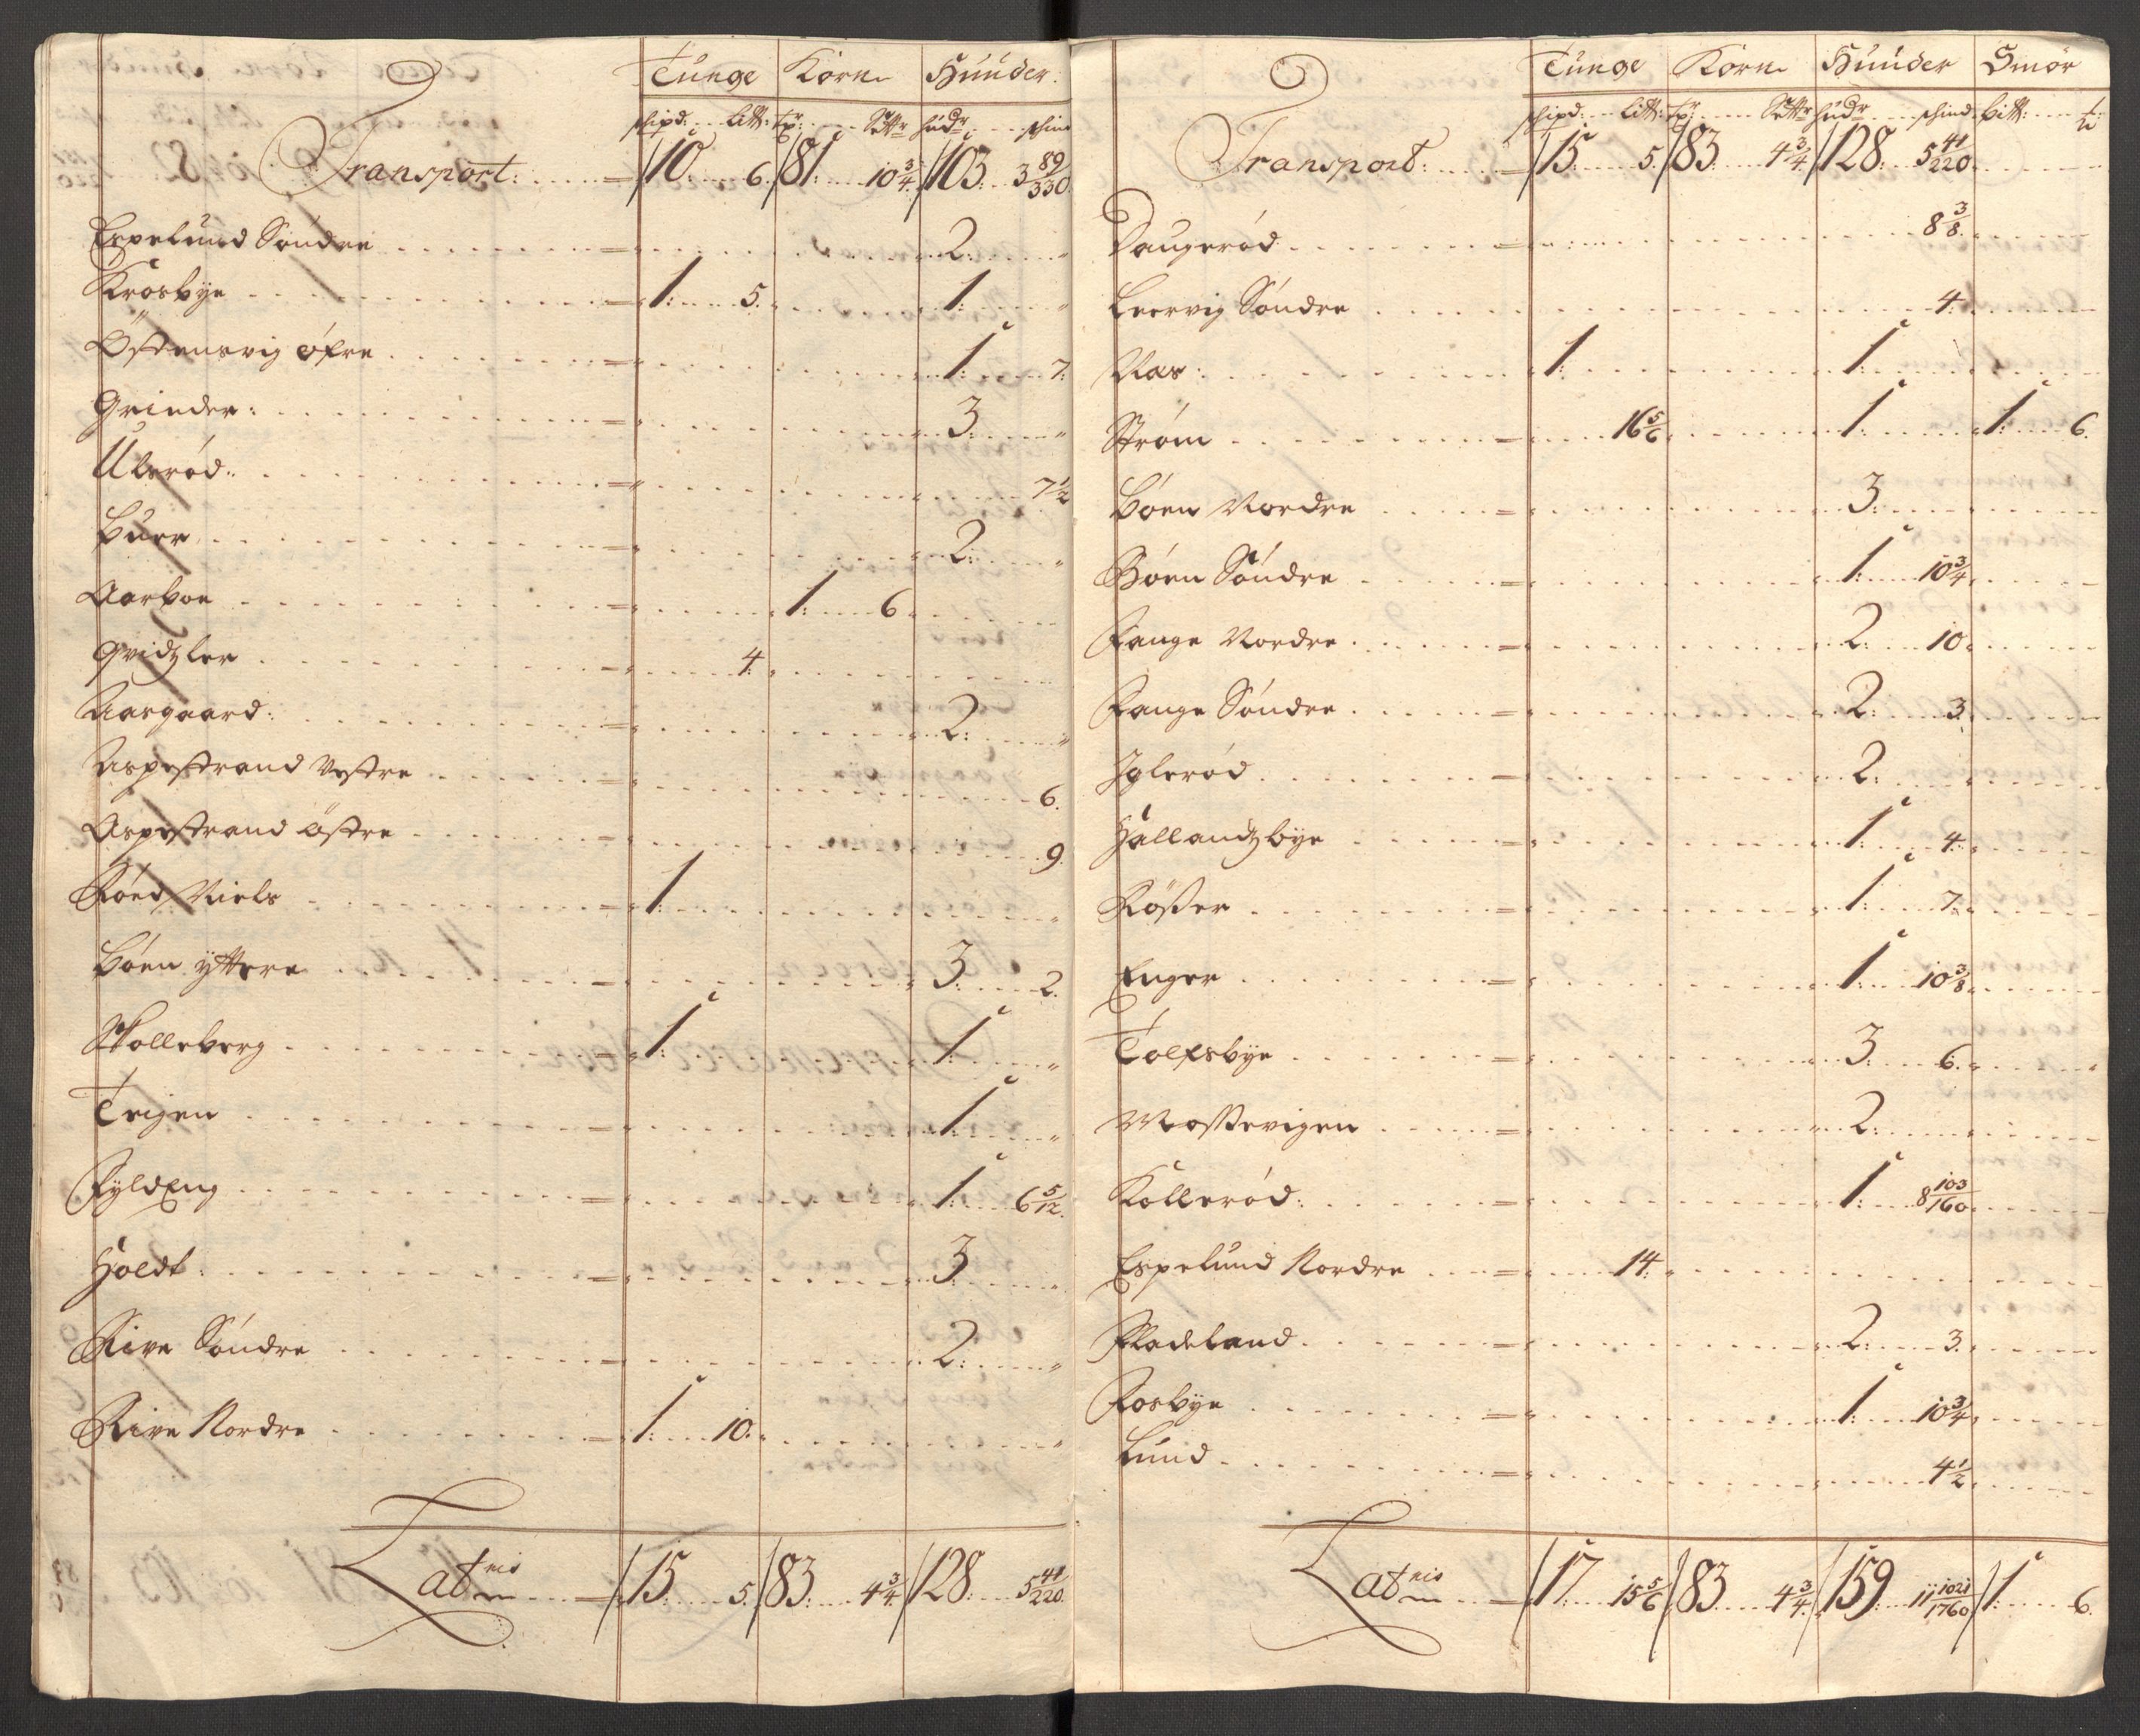 Tunge Korn Huuder.
schipd: Litt: tr: Sett: hudr schind
Transport: 10. 6. 81. 10 3/4. 103. 3 89/330.
Espelund Søndre 2.
Krosbye 1. 5. 1.
Østensvig øfre 1. 7.
Grinder: 3.
Ulsrød: 7 1/2
Buer 2.
Aarboe 1. 6.
Qvidtzler 4.
Aasgaard: 2.
Aspestrand Vestre 6.
Aspestrand Østre 9.
Røed Niels 1.
Bøen yttere 3. 2.
Skolleberg 1. 1.
Teigen 1.
Fyldeng 1. 6 5/12.
Holdt: 3.
Rive Søndre 2.
Rive Nordre 1. 10.
Lat 15. 5. 83. 4 3/4. 128. 5 41/220.
Tunge Korn Huuder Smør
schipd: Litt: tr: Sett: hudr schind bitt:
Transport: 15. 5. 83. 4 3/4. 128. 5 41/220.
Daugerød 8 3/8.
Leervig Søndre 4.
Nas: 1. 1.
Strøm 16 5/6. 1. 1. 6.
Bøen Nordre 3.
Bøen Søndre 1. 10 3/4.
Fange Nordre 2. 10.
Fange Søndre 2. 3.
Iglerød 2.
Hallandtzbye 1. 4.
Røster 1. 7.
Enger 1. 10 3/8.
Tolfsbye 3. 6.
Mostevigen 2.
Kollerød: 1. 8 103/160.
Espelund Nordre 14.
Fladeland 2. 3.
Fosbye 1. 10 3/4.
Lund 4 1/2.
Lat 17. 15 5/6. 83. 4 3/4. 159. 11 1021/1760. 1. 6.